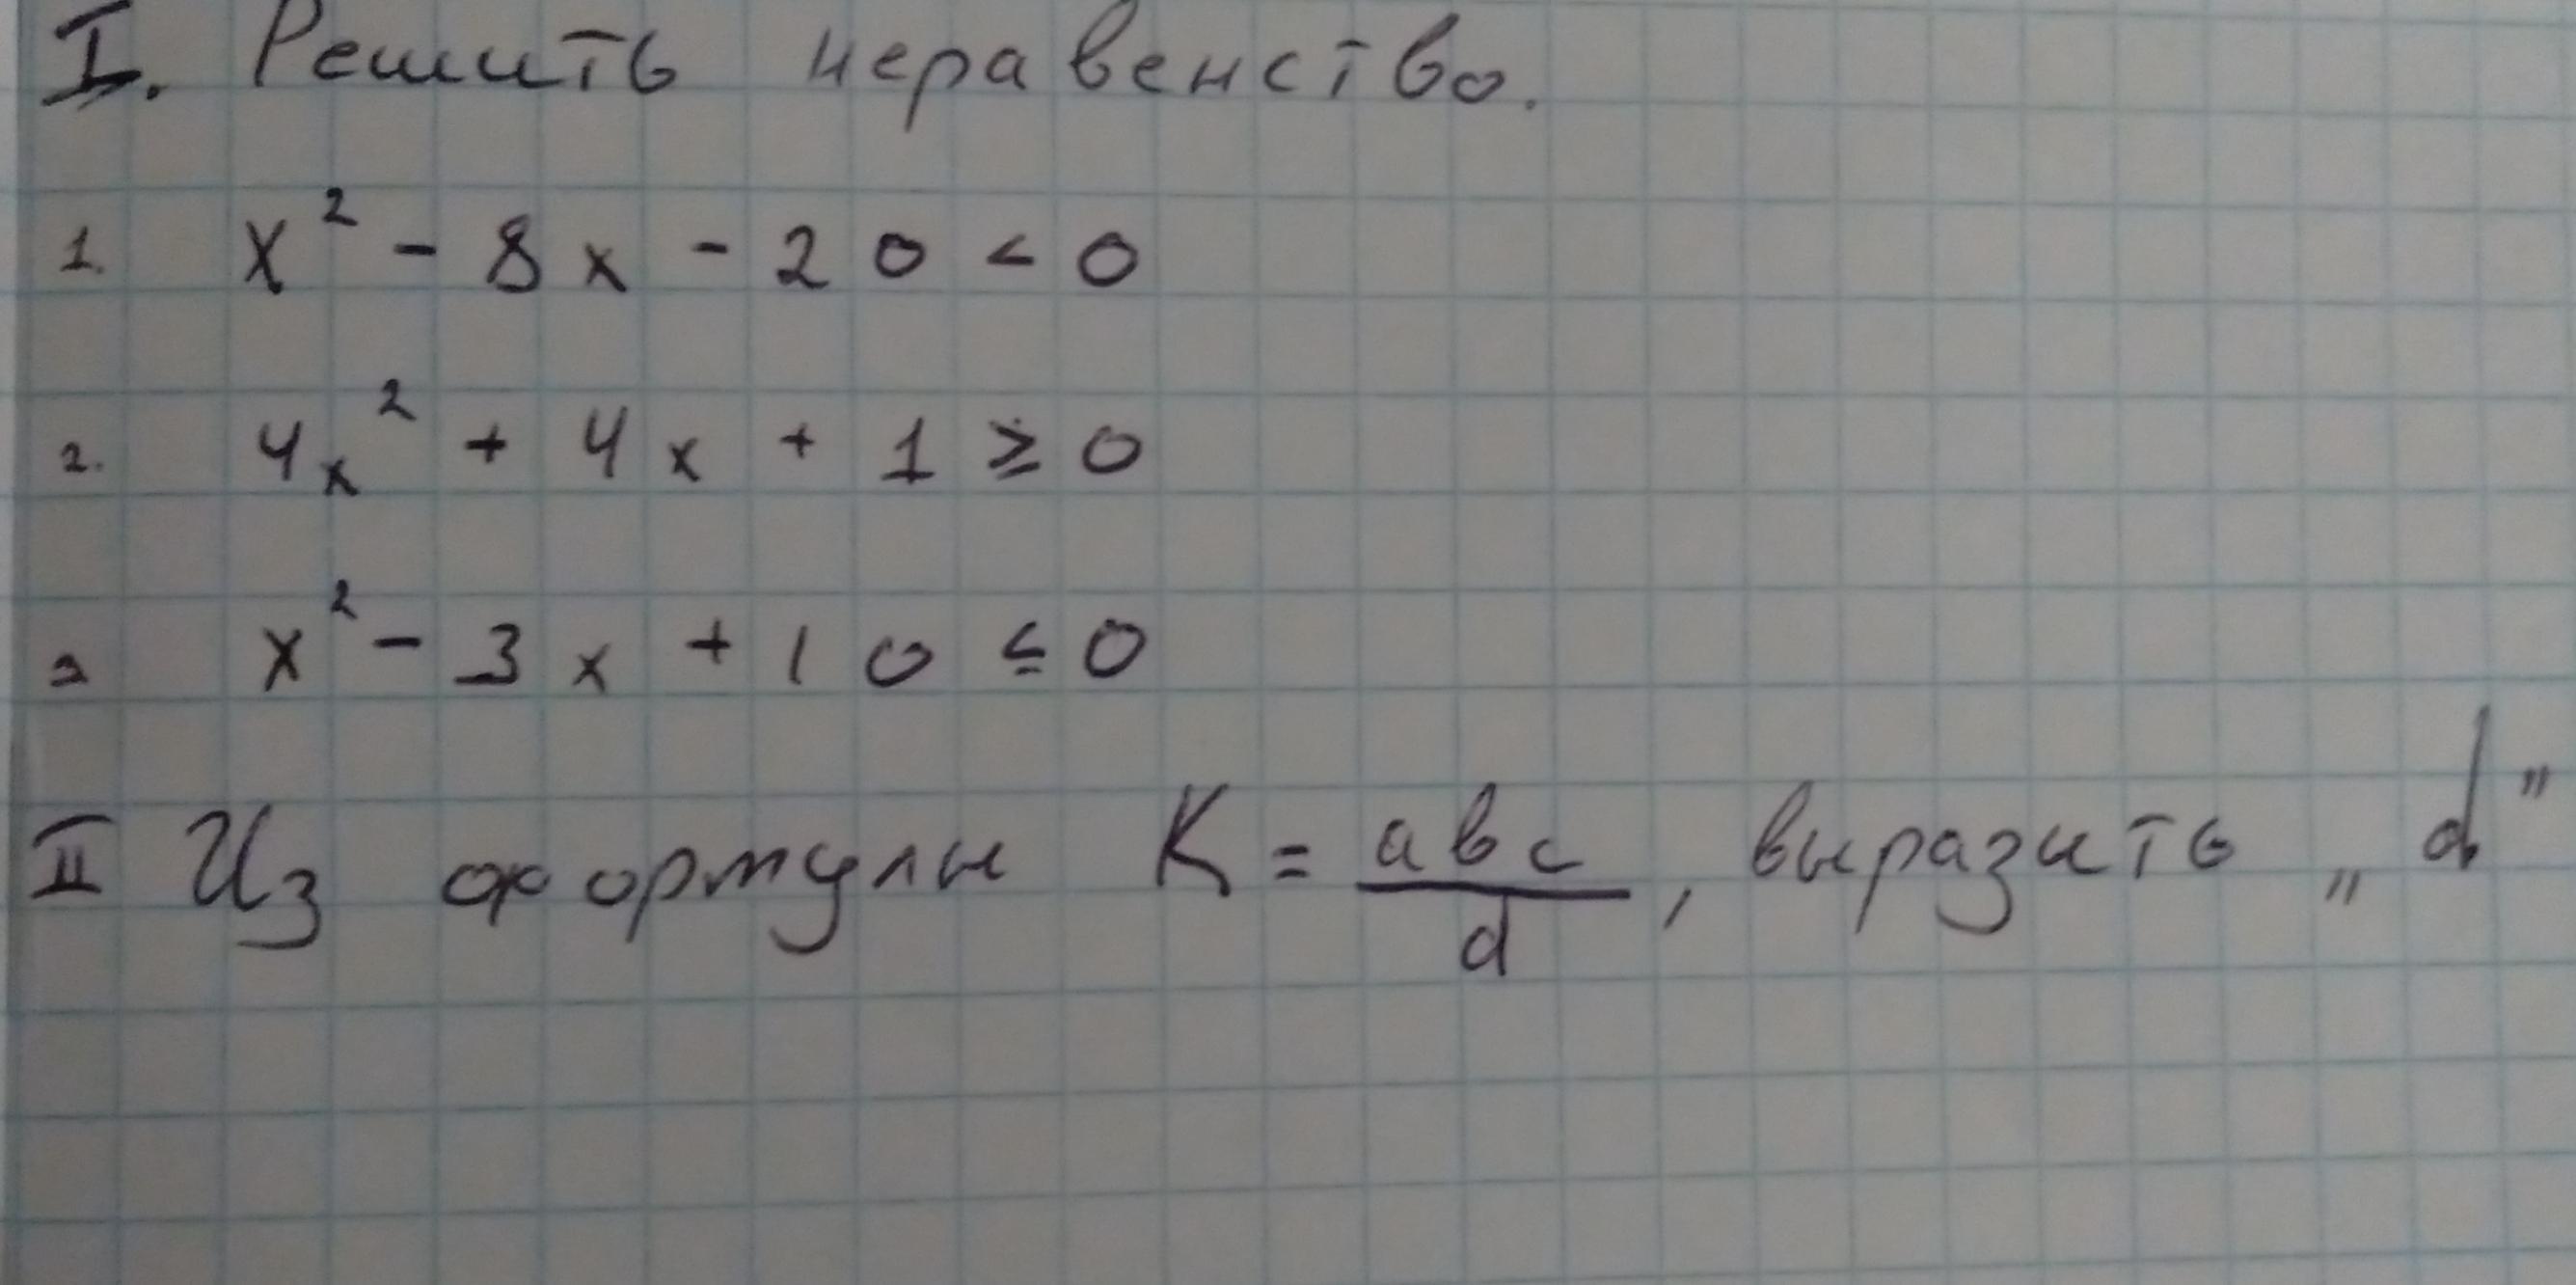 I. Решить неравенство.
1. x² - 8x - 20 < 0
2. 4x² + 4x + 1 ≥ 0
3 x² - 3x + 10 ≤ 0
II Из формулы K = abc/d, выразить „d”